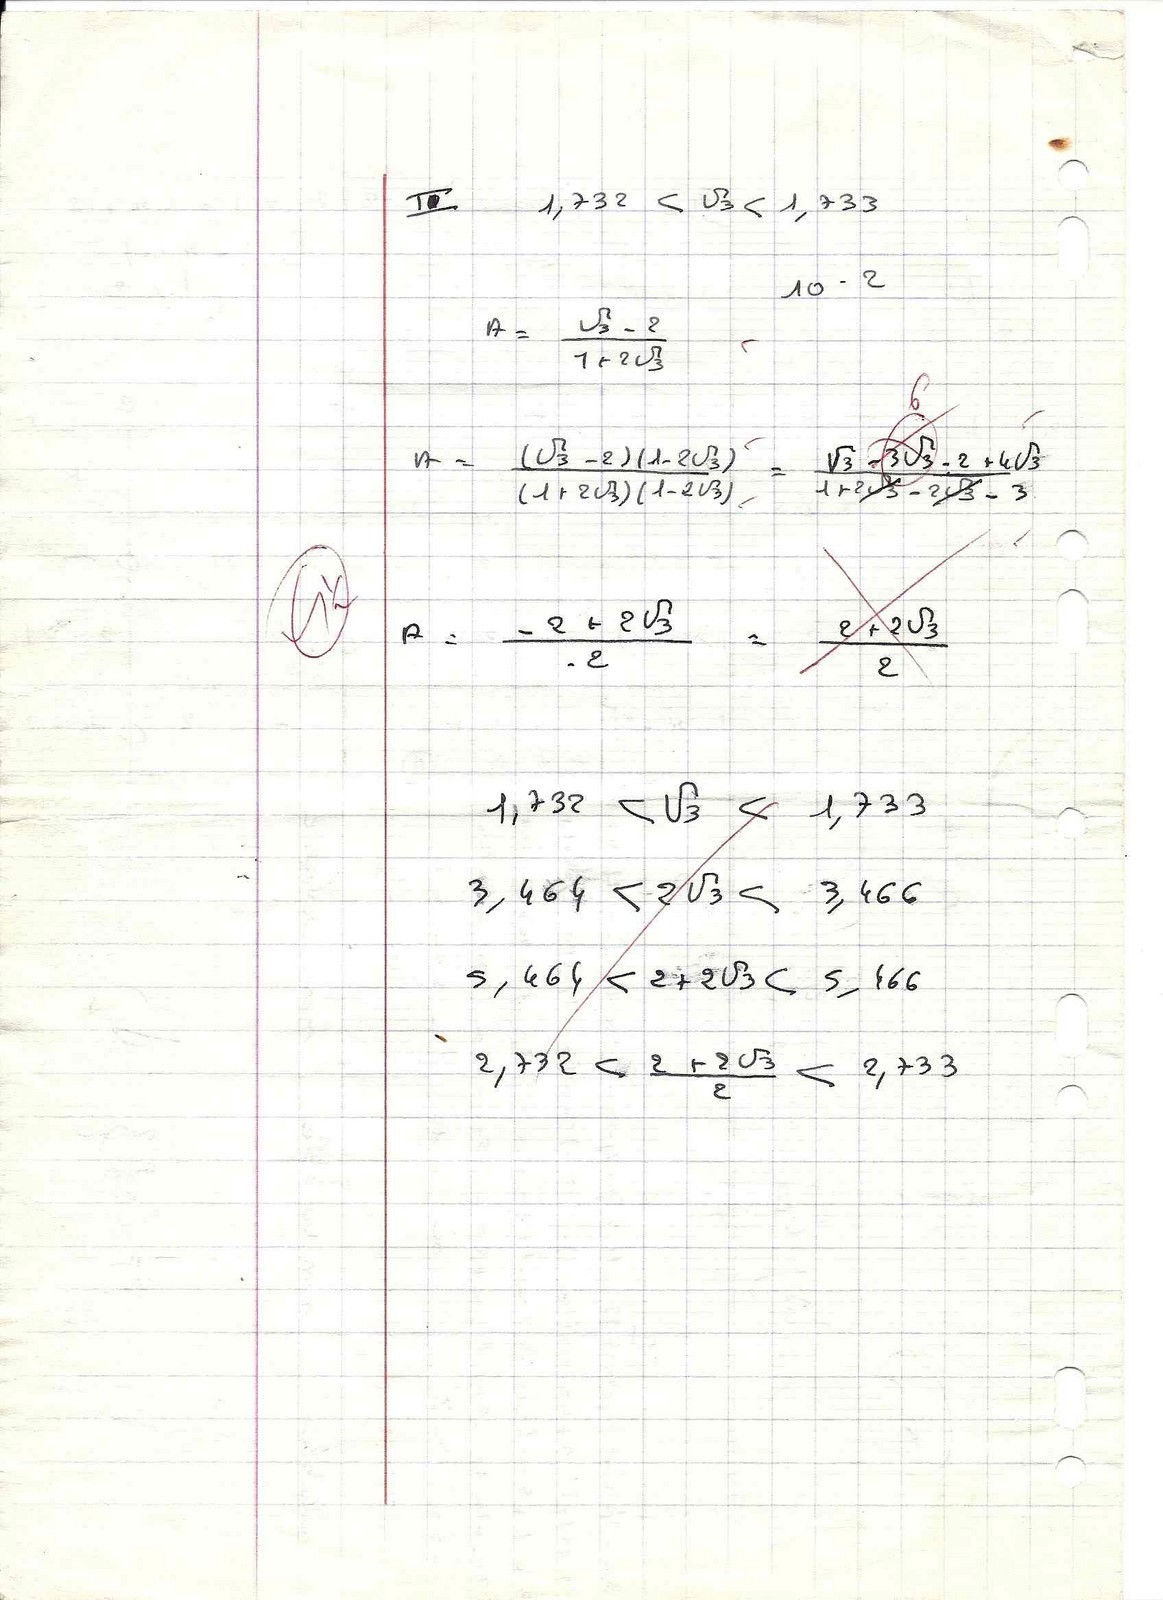 III 1,732 < √3 < 1,733
10-2
A = (√3 - 2)/(1 + 2√3)
A = ((√3 - 2)(1 - 2√3))/((1 + 2√3)(1 - 2√3)) = (√3 - 3√3 - 2 + 4√3)/(1 + 2√3 - 2√3 - 3)
6
A = (-2 + 2√3)/(-2) = (2 + 2√3)/2
1,732 < √3 < 1,733
3,464 < 2√3 < 3,466
5,464 < 2 + 2√3 < 5,466
2,732 < (2 + 2√3)/2 < 2,733